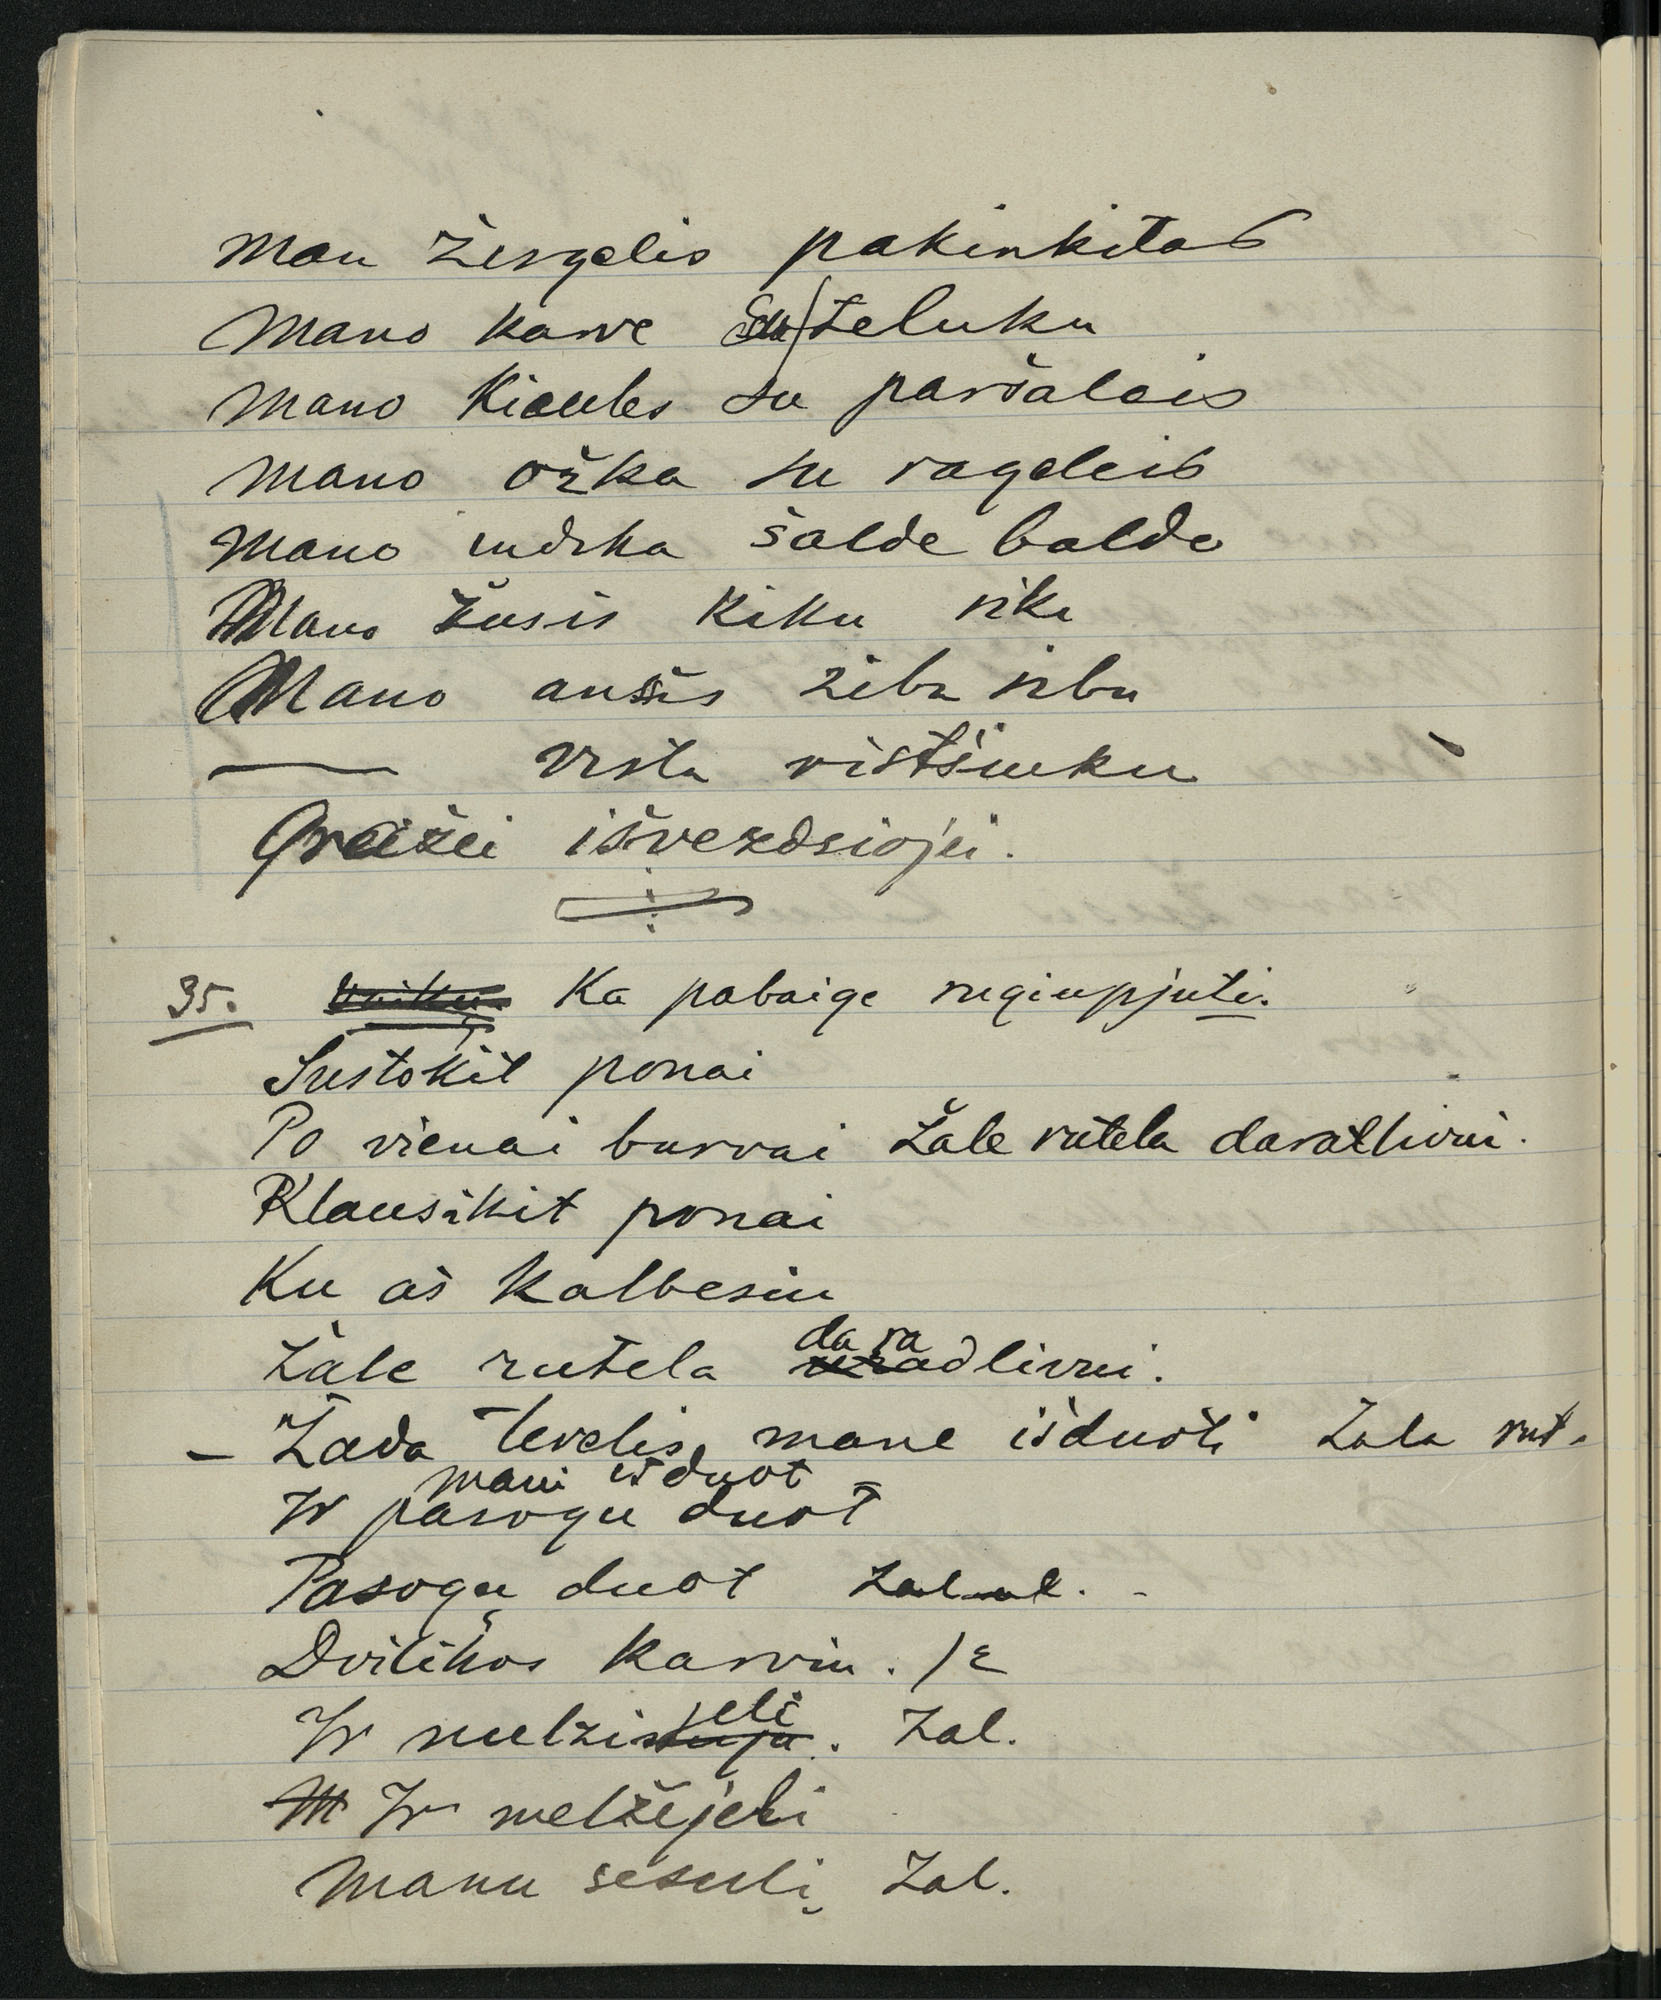 Man žirgelis pakinkitas
Mano karve su teluku
Mano kiaules su paršalais
Mano ožka su rageleis
Mano šalde balde
Mano žusis kiku riku
Mano ančis žibu ribu
vista vistšiuku
Graižei išverdsiojei.
35. Ka pabaige rugiupjuti.
Sustokit ponai
Po vienai burvai žale rutela daratlivui.
Klausikit ponai
Ku aš kalbesiu
Žale rutela daradlivui.
– Žada tevelis mane išduoti žala rut.
mani išduot
Ir pasogu duot
Pasogu duot žal rut. -
Dvilikos karviu.
Ir melžejeli. Žal.
Ir melžejeli
Manu sesuli Žal.